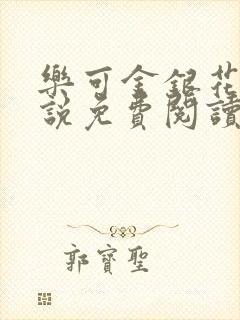 樂可金銀花
說免費閱讀
郭寶聖